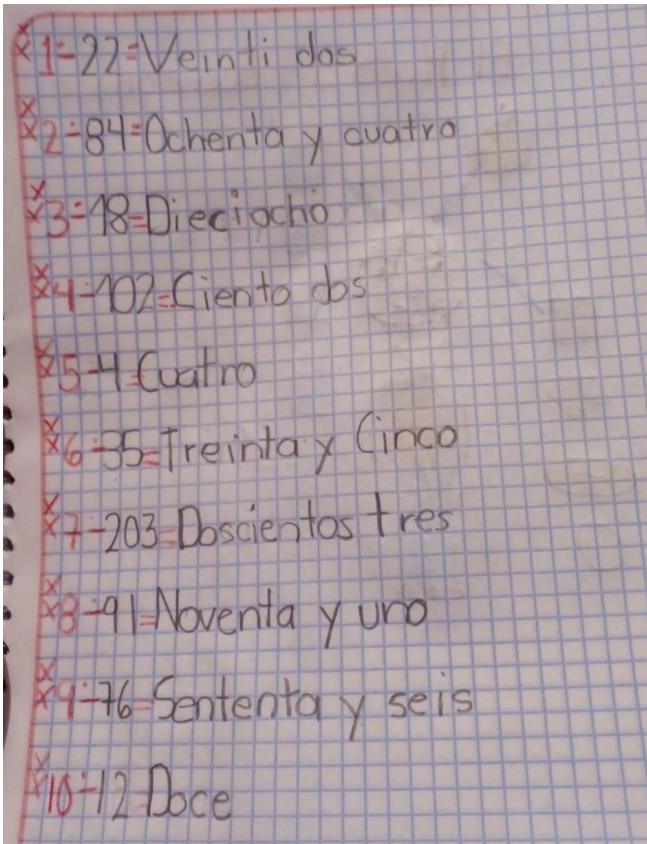 1-22=Veinti dos
2-84=Ochenta y cuatro
3-18=Dieciocho
4-102=Ciento dos
5-4=Cuatro
6-35=Treinta y Cinco
7-203=Doscientos tres
8-91=Noventa y uno
9-76=Sententa y seis
10-12=Doce